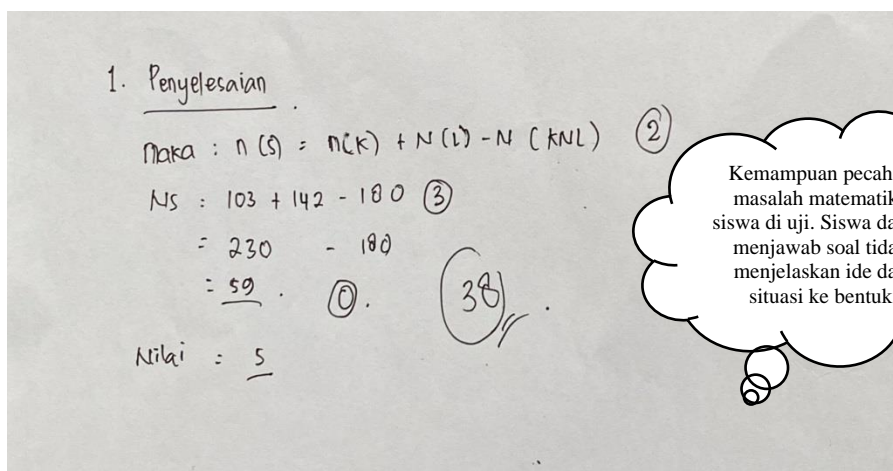 1. Penyelesaian
Maka : n (S) = n(K) + N (L) - N (KNL) (2)
NS : 103 + 142 - 180 (3)
= 230 - 180
= 59 . (0).
38
Nilai : 5
Kemampuan pecah
masalah matematik
siswa di uji. Siswa da
menjawab soal tida
menjelaskan ide da
situasi ke bentuk